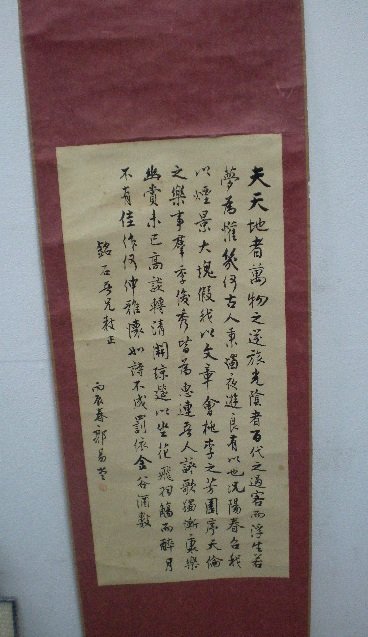 夫天地者萬物之逆旅光陰者百代之過客而浮生若
夢為懽幾何古人秉燭夜遊良有以也況陽春召我
以煙景大塊假我以文章會桃李之芳園序天倫
之樂事羣季俊秀皆為惠連吾人詠歌獨慚康樂
幽賞未已高談轉清開瓊筵以坐花飛羽觴而醉月
不有佳作何伸雅懷如詩不成罰依金谷酒數
銘石吾兄教正
丙辰春